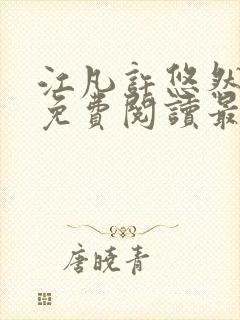 江凡許悠然
免費閱讀最
唐曉青